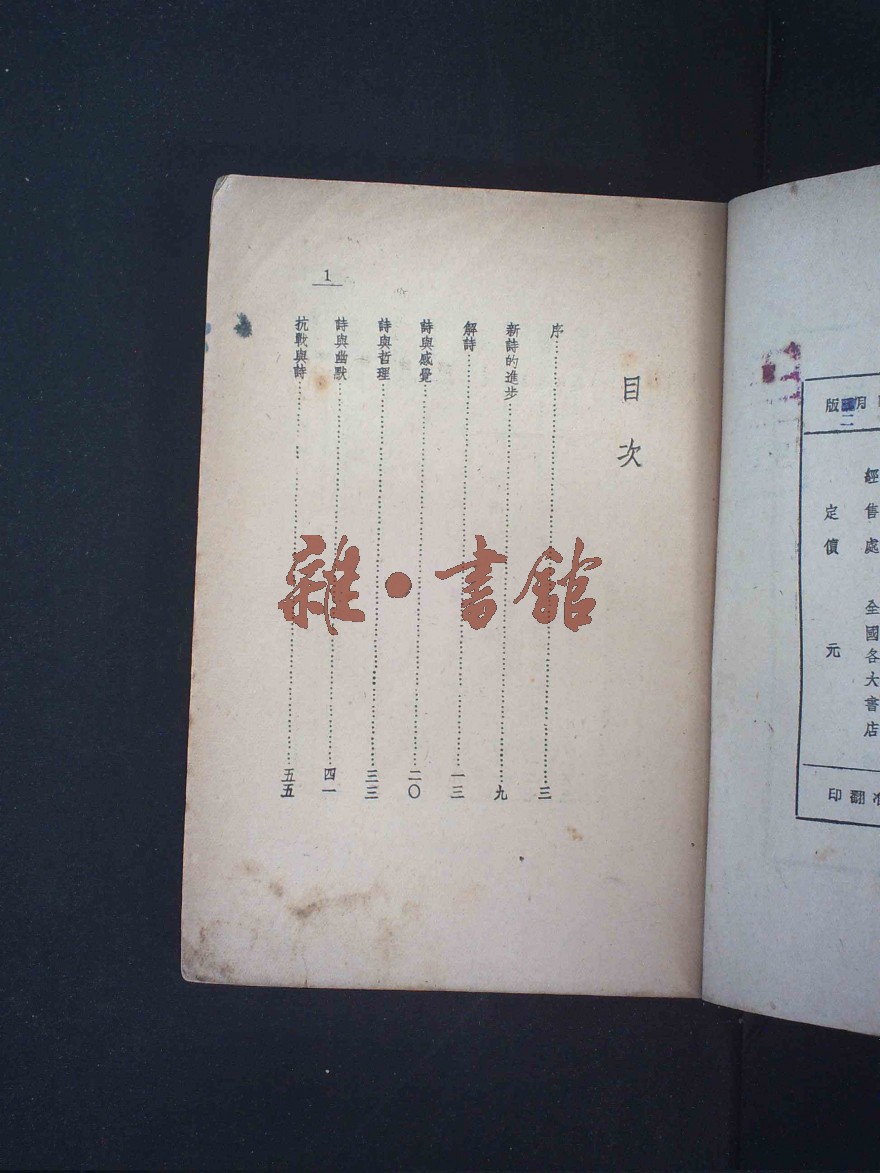 經售處 全國各大書店
定價 元
目次
序 三
新詩的進步 九
解詩 一三
詩與感覺 二〇
詩與哲理 三三
詩與幽默 四一
抗戰與詩 五五
1
雜·書館